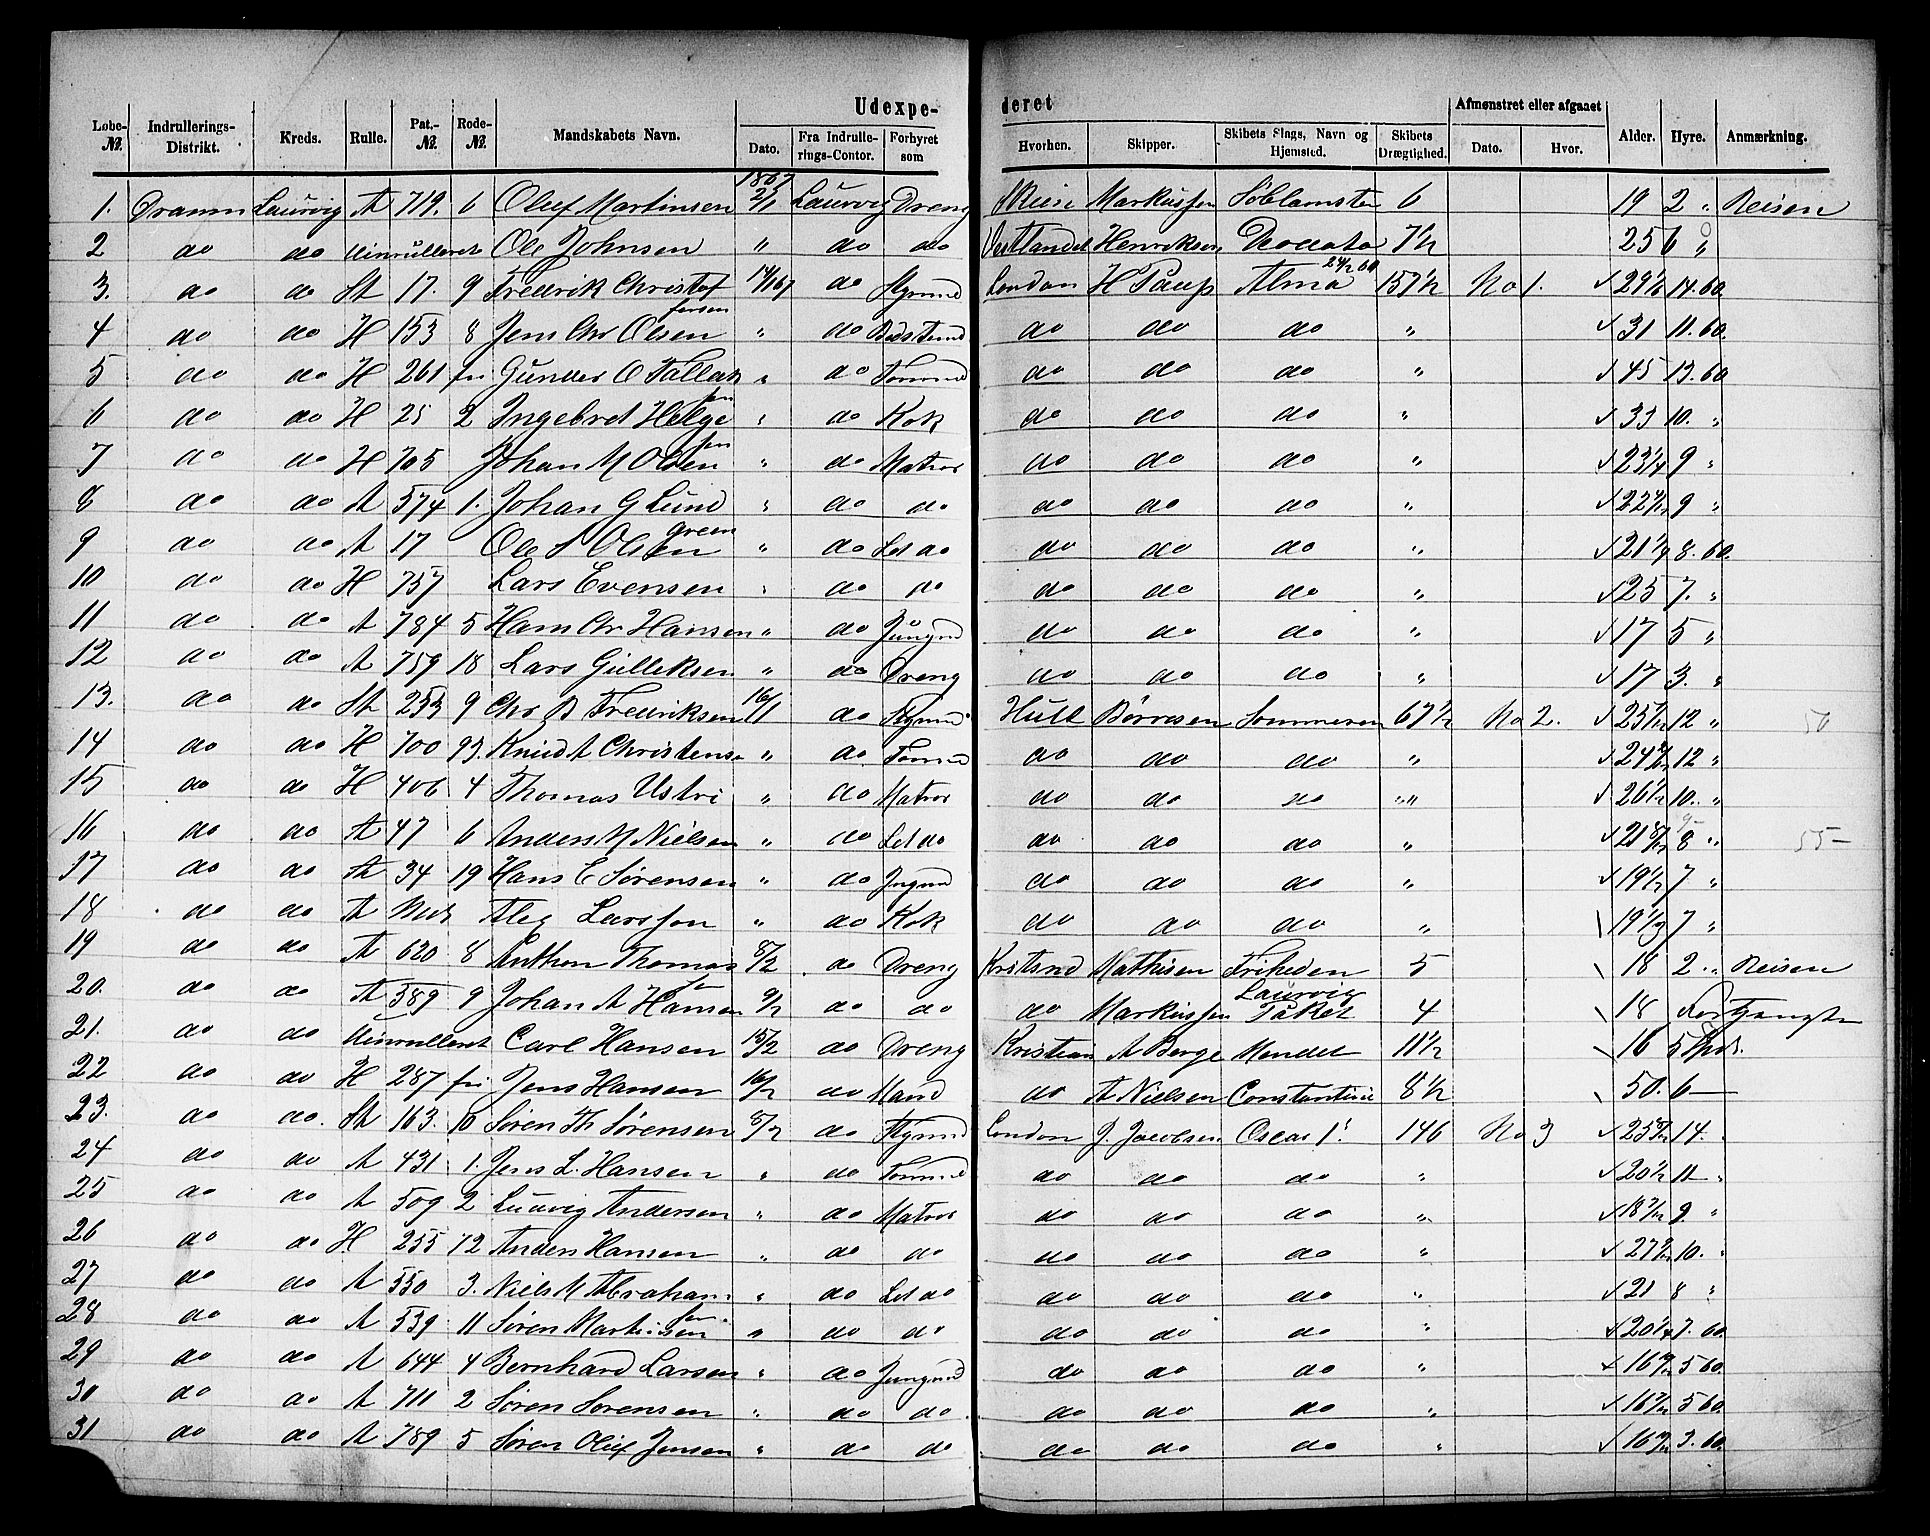 Udexpe- deret
Løbe-№. Indrullerings-Distrikt. Kreds. Rulle. Pat.-№. Rode-№. Mandskabets Navn. Dato. Fra Indrulle-rings-Contor. Forbyret som Hvorhen. Skipper. Skibets Slags, Navn og Hjemsted. Skibets Drægtighed. Afmønstret eller afgaaet Dato. Hvor. Alder. Hyre. Anmærkning.
1867
1. Dramm Laurvig A 719. 6 Oluf Martinsen 2/1 Laurvig Dreng Markussen 6 19 2 " Reisen
2 do do Uinrulleret Ole Johnsen " do do Vestlandet Henriksen 7 1/2 25 6 "
3. do do St 17. 9 Fredrik Christof fersen 14/1 67 do Stymd London H Paup Alma 157 1/2 No 1. 29 1/2 14. 60
4 do do H 153 8 Jens Chr Olsen " do Bdstmd do do do " 31 11. 60.
5 do do H 261 fri Gunder O Fallak sen " do Tømmd do do do " 45 13. 60
6 do do H 25 2 Ingebret Helge sen " do Kok do do do " 33 10. "
7 do do H 705 Johan M Olsen " do Matros do do do " 23 1/4 9 "
8 do do A 574 1. Johan G Lund " do do do do do " 9 "
9 do do A 17 Ole S Olsen green " do Let do do do do " 21 1/4 8. 60.
10 do do H 757 Lars Evensen " do do do do do " 25 7. "
11 do do A 784 5 Hans Chr Hansen " do Jungmd do do do " 17 5 "
12 do do A 759 18 Lars Gulleksen " do Dreng do do do " 17 3. "
13. do do St 253 9 Chr B Fredriksen 16/1 do Stymd Hull Børresen Sommeren 67 1/2 No 2. 12 " 50
14 do do H 700 93. Knud A Christens. " do Tømmd do do do " 12 "
15 do do H 406 4 Thomas Ustvi " do Matros do do do " 26 1/2 10. "
16 do do A 47 6 Anders M Nielsen " do Let do do do do " 8 " 55-
17 do do A 34 19 Hans E Sørensen " do Jngmd do do do " 19 1/2 7 "
18 do do A Alex Larssen " do Kok do do do " 19 1/3 7 "
19 do do A 620 8 Anthon Thomas sen 8/2 do Dreng Kristsnd Mathisen Friheden 5 18 2 " Reisen
20. do do A 389 9 Johan A Hansen 9/2 do do do Markussen Laurvig Paket 4 18
21. do do Uinrulleret Carl Hansen 15/2 do Dreng Kristian A Berge Mandal 11 1/2 16 5 Spd.
22 do do H 287 fri Jens Hansen 16/2 do Mand do A Nielsen Constantine 8 1/2 50. 6 -
23. do do. St 163. 10 Søren Th Sørensen 8/2 do Stymd London J. Jacobsen Oscar 1. 146 No 3 14.
24 do do A 431 1. Jens L. Hansen " do Tømmd do do do " 20 1/2 11 -
25 do do A 509 2 Ludvig Andersen " do Matros do do do " 9. "
26 do do H 255 72 Anders Hansen " do do do do do " 10. "
27 do do A 550 3. Niels M Abraham sen " do Let do do do do " 21 8 "
28 do do A 539 11 Søren Martinsen " do do do do do " 20 1/4 7. 60.
29 do do A 644 4 Bernhard Larsen " do Jungmd do do do " 5 60
30 do do A 711 2 Søren Sørensen " do do do do do " 5 60.
31 do do A 789 5 Søren Oluf Jensen " do do do do do " 3. 60.